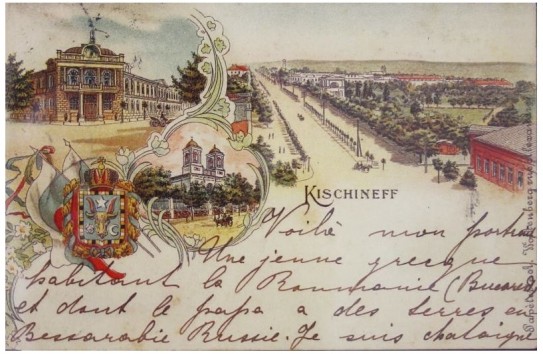 KISCHINEFF
Voilà mon portrait
Une jeune grecque
habitant la Roumanie (Bucarest)
et dont le papa a des terres en
Bessarabie Russie. Je suis